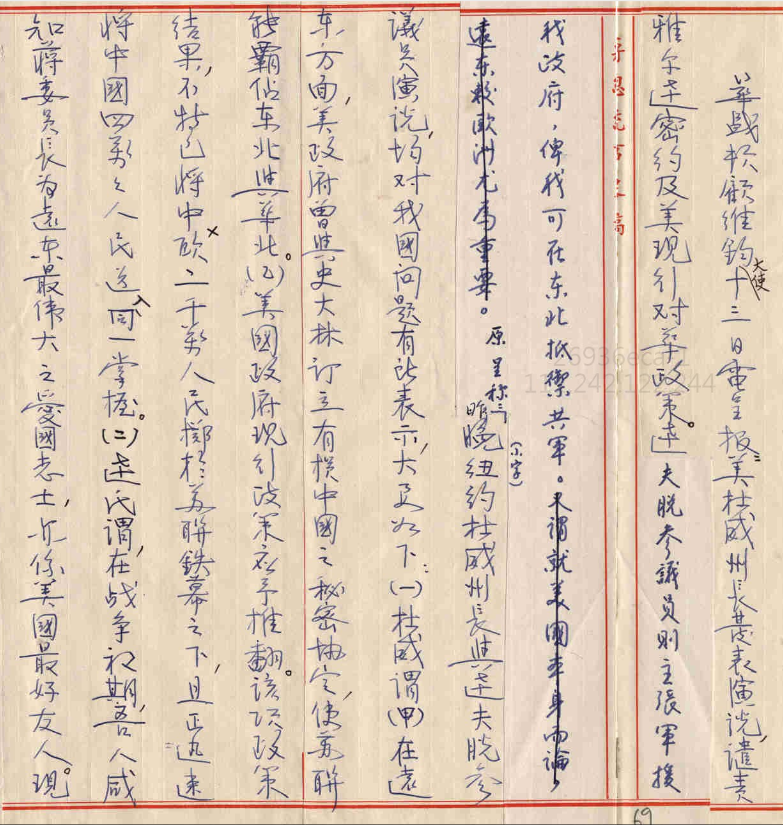 華盛頓顧維鈞大使十三日電呈報:美杜威州長發表演說,譴責
雅尔達密約及美現行对華政策。達夫脫參議員則主張軍援
我政府,俾我可在东北抵禦共軍。又謂就美國本身而論,
遠东較歐洲尤為重要。原呈称:(小字)昨晚紐約杜威州長與達夫脫參
議員演說,均对我國问题有所表示,大及如下:(一)杜威謂(甲)在遠
东方面,美政府曾與史大林订立有損中國之秘密协定,使苏联
能霸佔东北與華北。(乙)美國政府現行政策应予推翻。該項政策
結果,不特已将中欧二千萬人民擲於苏联鉄幕之下,且正迅速
将中國四萬萬人民送入同一掌握。(二)達氏謂,在战争初期,吾人咸
知蔣委員長為遠东最偉大之愛國志士,亦係美國最好友人。現
69